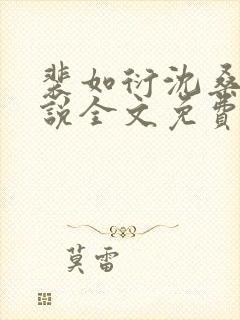 裴如衍沈桑
说全文免费
莫雷